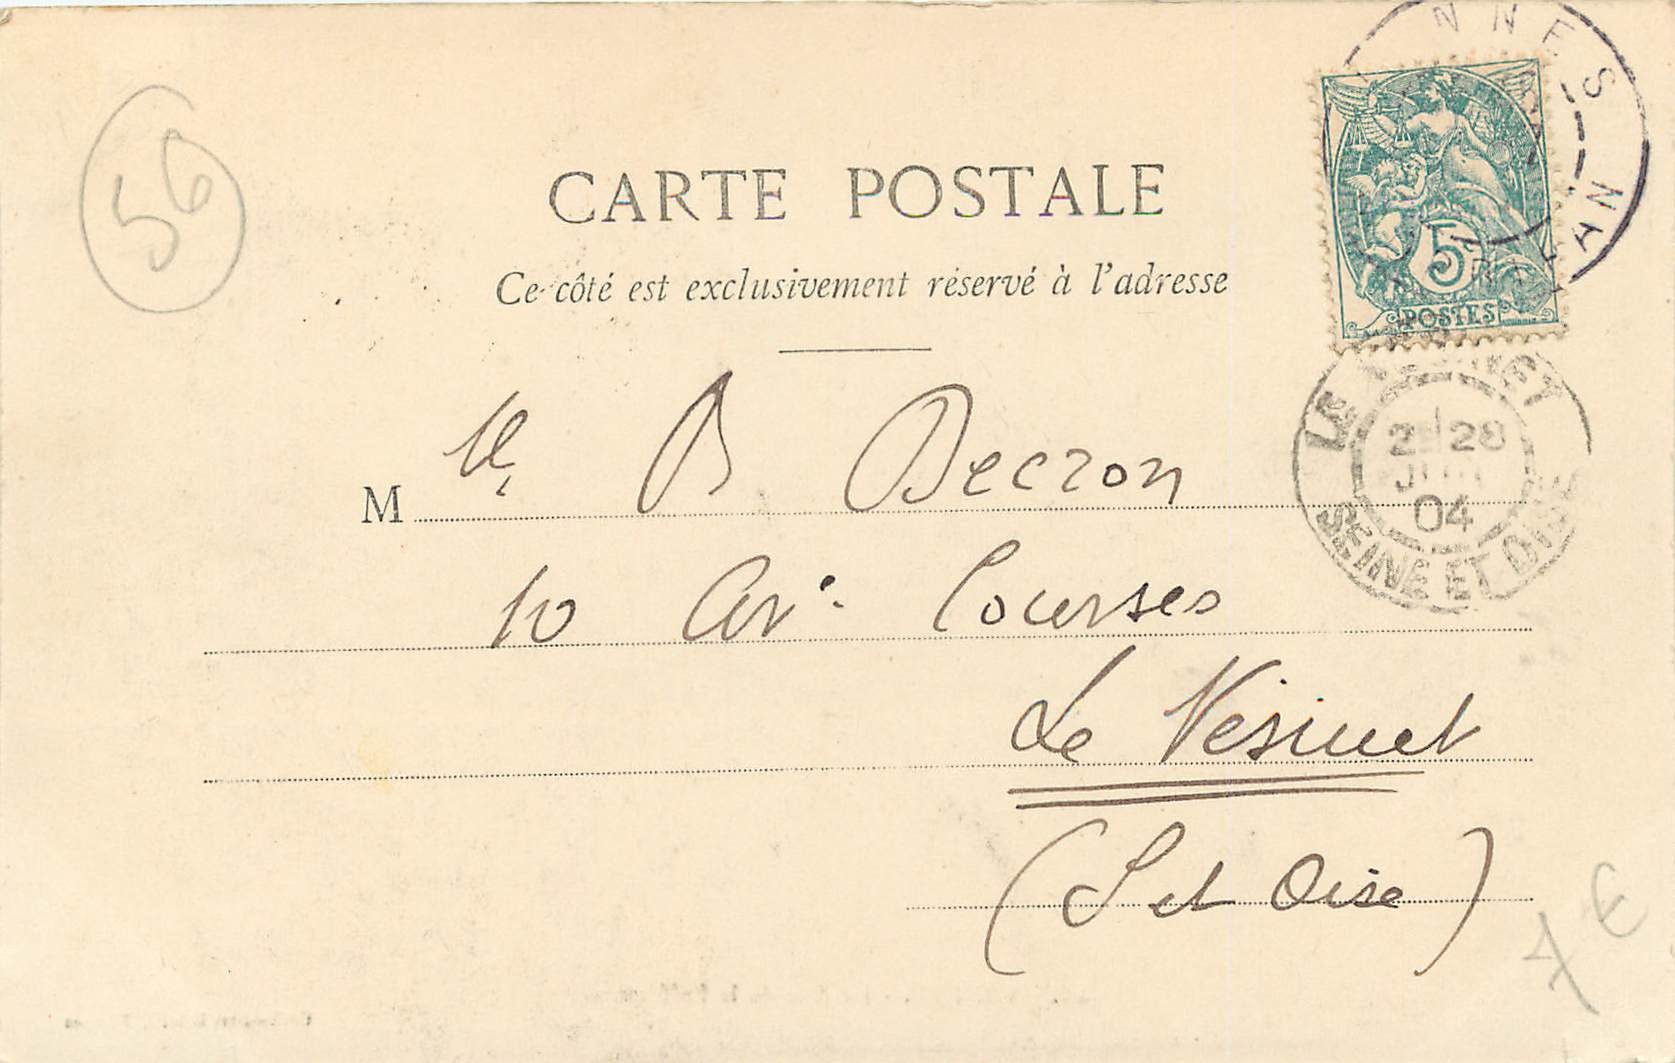 56
CARTE POSTALE
Ce côté est exclusivement réservé à l'adresse
5
POSTES
NNES
LE
28
04
SEINE ET OISE
M lle B Decron
10 Av. Courses
Le Vésinet
(S et Oise)
7 €